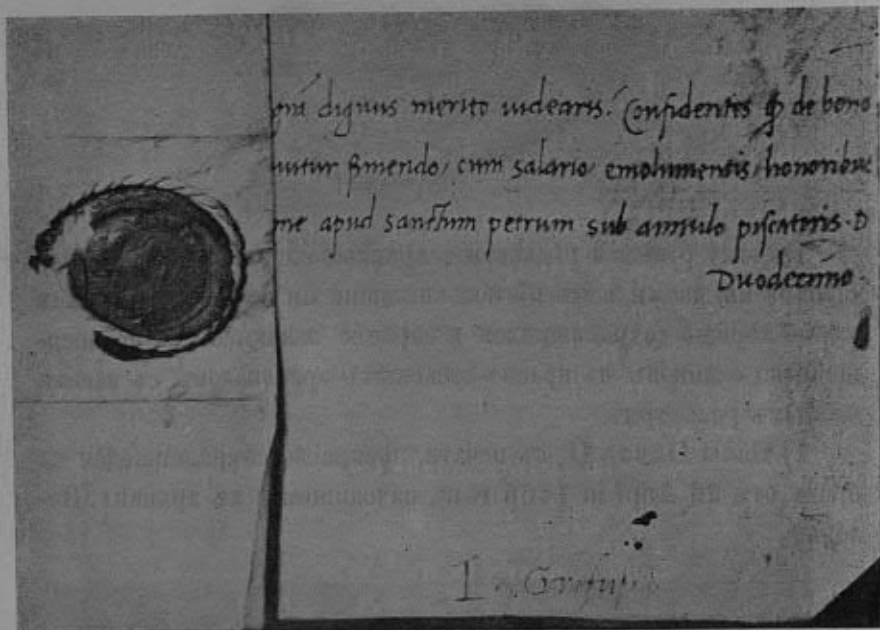 dignus merito uidearis. Confidentes de bono
cum salario, emolumentis, honoribus
me apud sanctum petrum sub annulo piscatoris. D
Duodecimo.